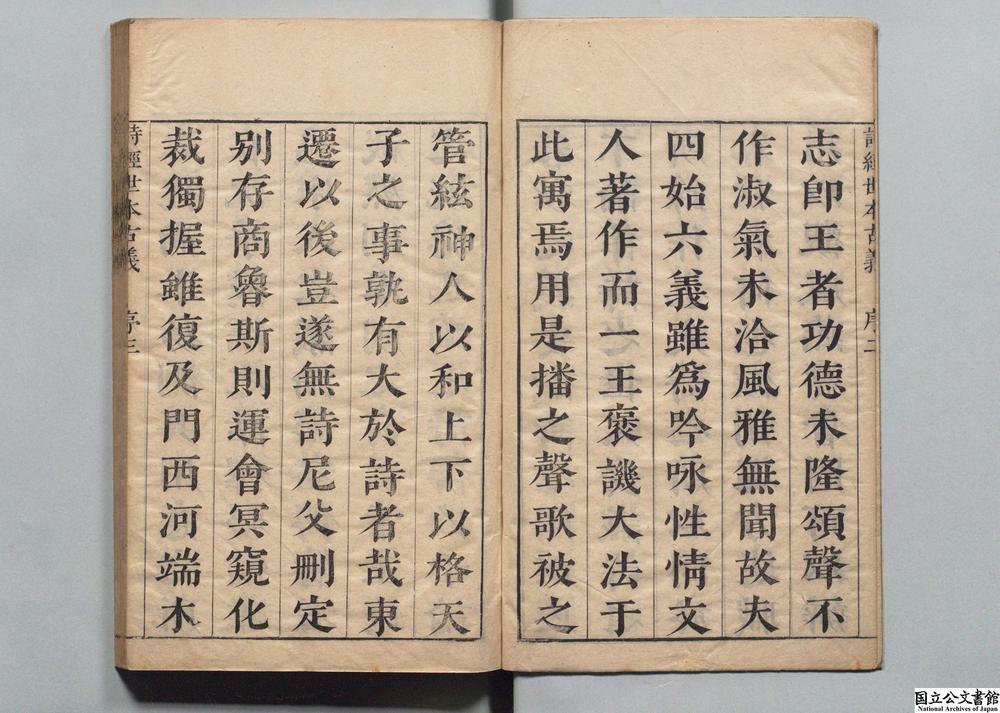 詩經世本古義 序二
志卽王者功德未隆頌聲不
作淑氣未洽風雅無聞故夫
四始六義雖爲吟咏性情文
人著作而一王褒譏大法于
此寓焉用是播之聲歌被之
管絃神人以和上下以格天
子之事孰有大於詩者哉東
遷以後豈遂無詩尼父刪定
别存商魯斯則運會冥窺化
裁獨握雖復及門西河端木
詩經世本古義 序三
国立公文書館
National Archives of Japan